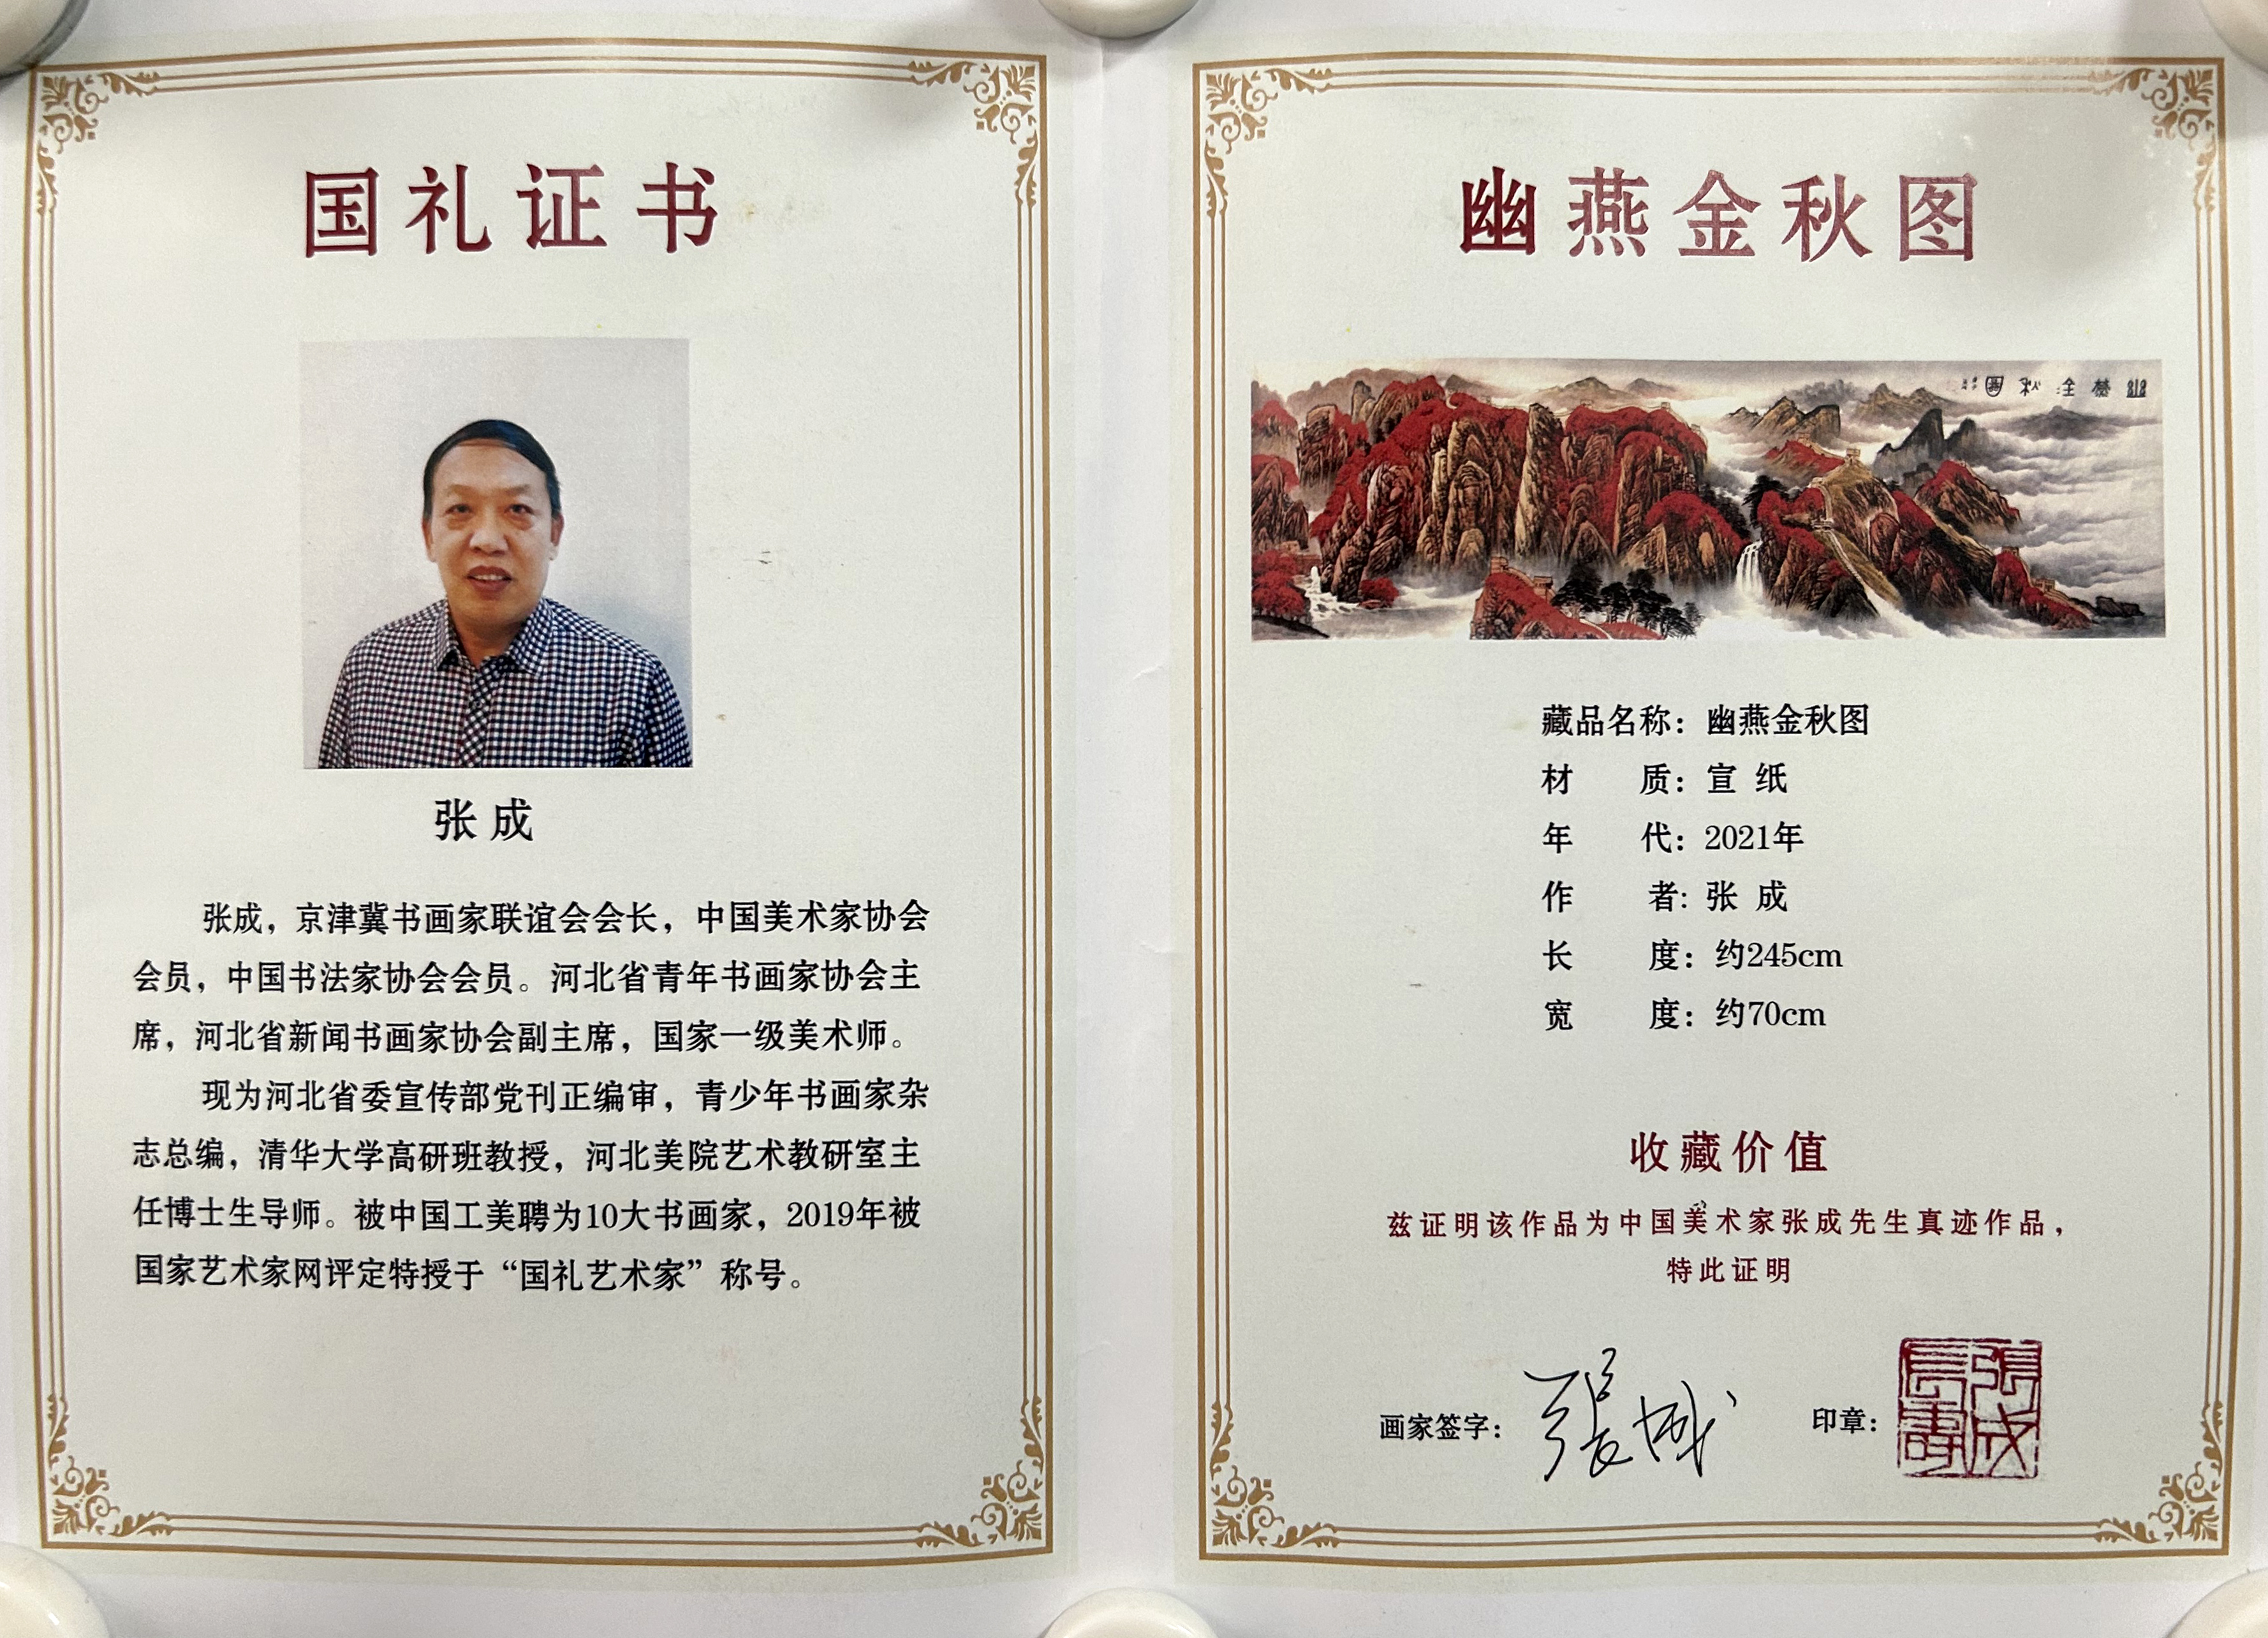 国礼证书
张成
张成，京津冀书画家联谊会会长，中国美术家协会
会员，中国书法家协会会员。河北省青年书画家协会主
席，河北省新闻书画家协会副主席，国家一级美术师。
现为河北省委宣传部党刊正编审，青少年书画家杂
志总编，清华大学高研班教授，河北美院艺术教研室主
任博士生导师。被中国工美聘为10大书画家，2019年被
国家艺术家网评定特授于“国礼艺术家”称号。
幽燕金秋图
幽燕金秋圖
藏品名称：幽燕金秋图
材 质：宣 纸
年 代：2021年
作 者：张 成
长 度：约245cm
宽 度：约70cm
收藏价值
兹证明该作品为中国美术家张成先生真迹作品，
特此证明
画家签字：張成
印章：
張成